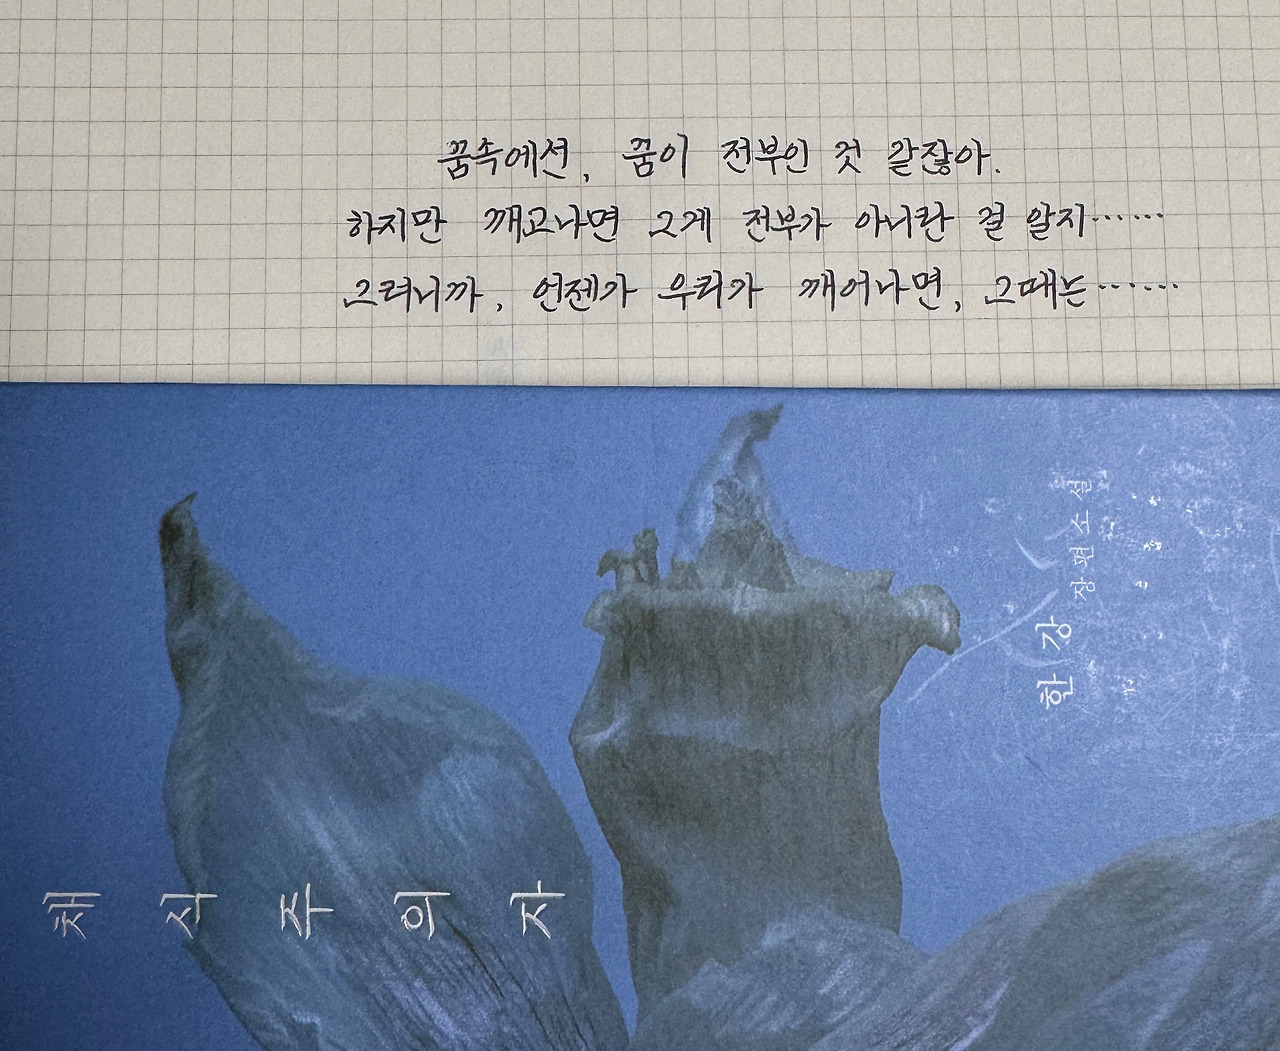 꿈속에선, 꿈이 전부인 것 같잖아.
하지만 깨고나면 그게 전부가 아니란 걸 알지……
그러니까, 언젠가 우리가 깨어나면, 그때는……
한강 장편소설
채식주의자